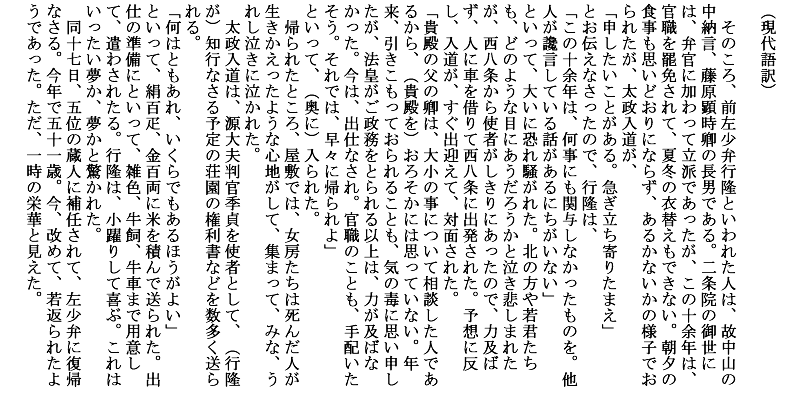 （現代語訳）
　そのころ、前左少弁行隆といわれた人は、故中山の
中納言、藤原顕時卿の長男である。二条院の御世に
は、弁官に加わって立派であったが、この十余年は、
官職を罷免されて、夏冬の衣替えもできない。朝夕の
食事も思いどおりにならず、あるかないかの様子でお
られたが、太政入道が、
「申したいことがある。急ぎ立ち寄りたまえ」
とお伝えなさったので、行隆は、
「この十余年は、何事にも関与しなかったものを。他
人が讒言している話があるにちがいない」
といって、大いに恐れ騒がれた。北の方や若君たち
も、どのような目にあうだろうかと泣き悲しまれた
が、西八条から使者がしきりにあったので、力及ば
ず、人に車を借りて西八条に出発された。予想に反
し、入道が、すぐ出迎えて、対面された。
「貴殿の父の卿は、大小の事について相談した人であ
るから、（貴殿を）おろそかには思っていない。年
来、引きこもっておられることも、気の毒に思い申し
たが、法皇がご政務をとられる以上は、力が及ばな
かった。今は、出仕なされ。官職のことも、手配いた
そう。それでは、早々に帰られよ」
といって、（奥に）入られた。
　帰られたところ、屋敷では、女房たちは死んだ人が
生きかえったような心地がして、集まって、みな、う
れし泣きに泣かれた。
　太政入道は、源大夫判官季貞を使者として、（行隆
が）知行なさる予定の荘園の権利書などを数多く送ら
れる。
「何はともあれ、いくらでもあるほうがよい」
といって、絹百疋、金百両に米を積んで送られた。出
仕の準備にといって、雑色、牛飼、牛車まで用意し
て、遣わされたる。行隆は、小躍りして喜ぶ。これは
いったい夢か、夢かと驚かれた。
　同十七日、五位の蔵人に補任されて、左少弁に復帰
なさる。今年で五十一歳。今、改めて、若返られたよ
うであった。ただ、一時の栄華と見えた。